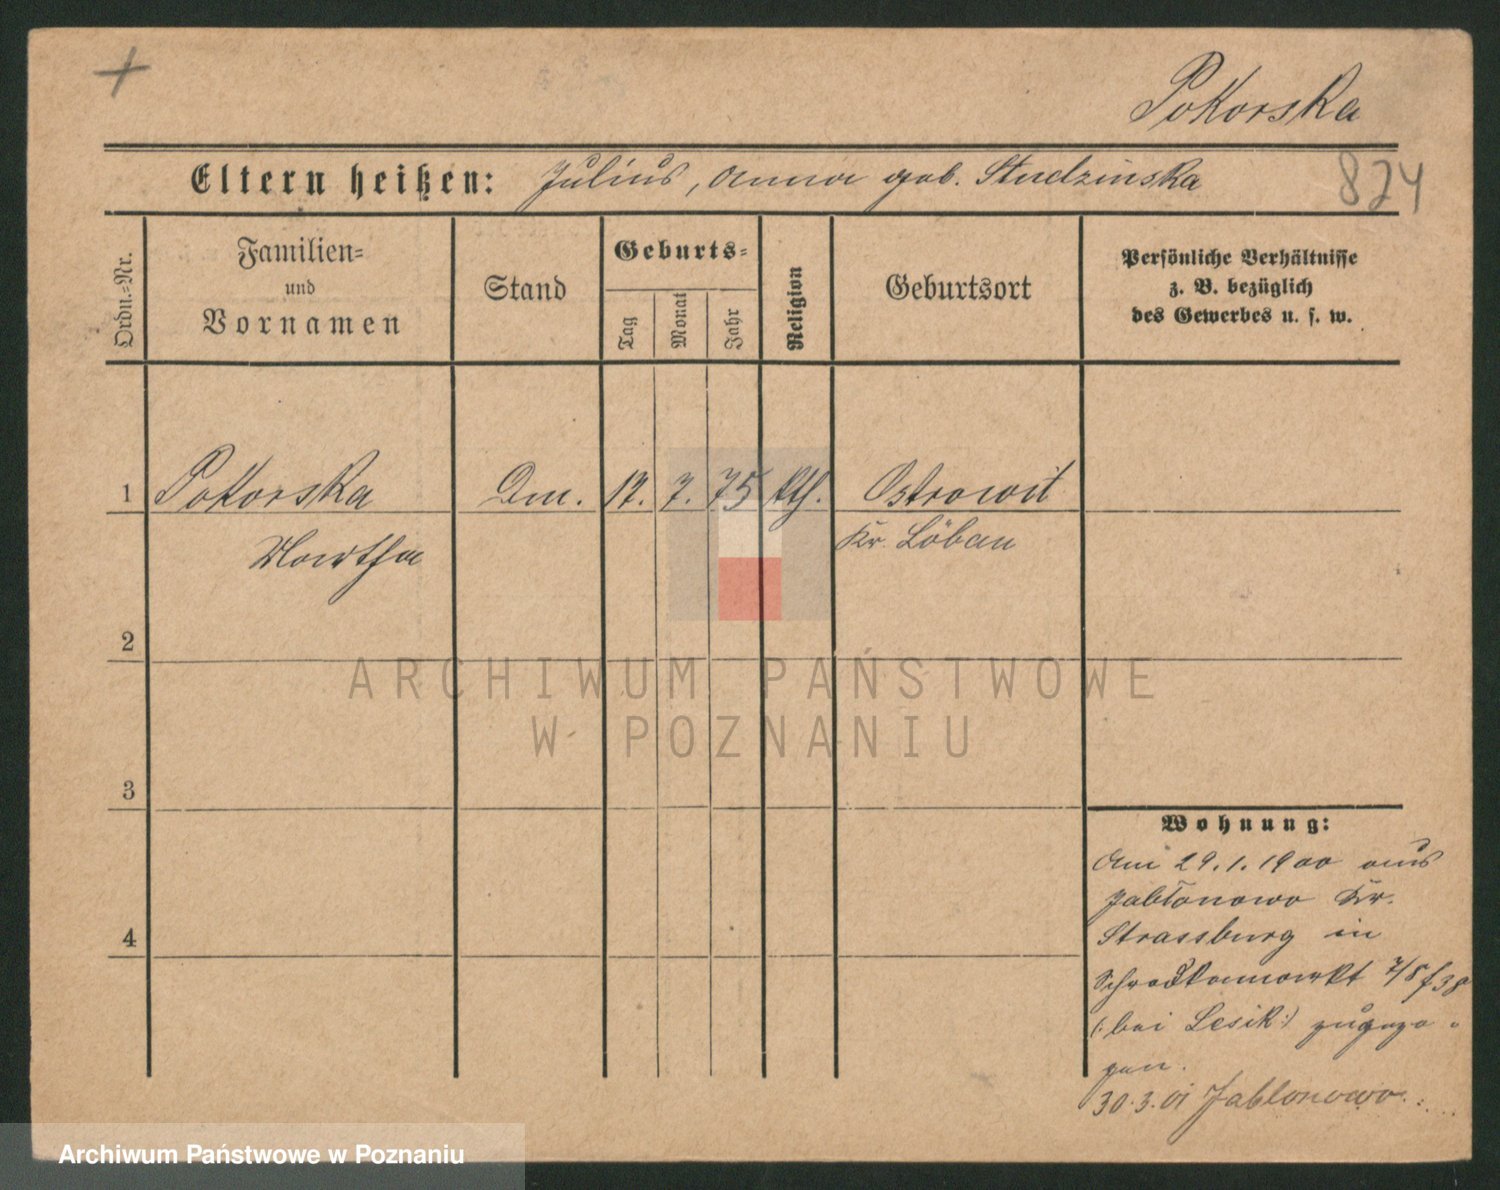 Pokorska
Eltern heißen: Julius, Anna geb. Studzinska
824
Ordn.-Nr.
Familien-
und
Vornamen
Stand
Geburts-
Tag
Monat
Jahr
Religion
Geburtsort
Persönliche Verhältnisse
z. B. bezüglich
des Gewerbes u. s. w.
1 Pokorska 17. 7. 75 kth. Ostrowit
Martha Kr. Löbau
2
3
4
ARCHIWUM PAŃSTWOWE
W POZNANIU
Wohnung:
Am 29.1.1900 aus
Jabłonowo Kr.
Strassburg in
7/8
(: bei Lesik :) zugezo-
gen.
30.3.01 Jablonowo
Archiwum Państwowe w Poznaniu